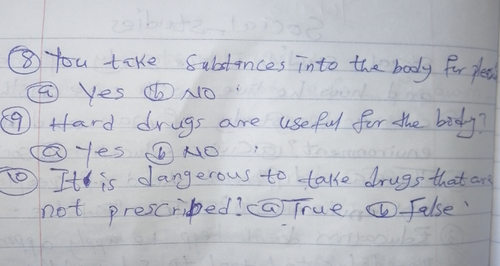 ⑧ You take substances into the body for
ⓐ Yes ⓑ NO.
⑨ Hard drugs are useful for the body?
ⓐ Yes ⓑ NO.
⑩ It is dangerous to take drugs that are
not prescribed! ⓐ True ⓑ false.